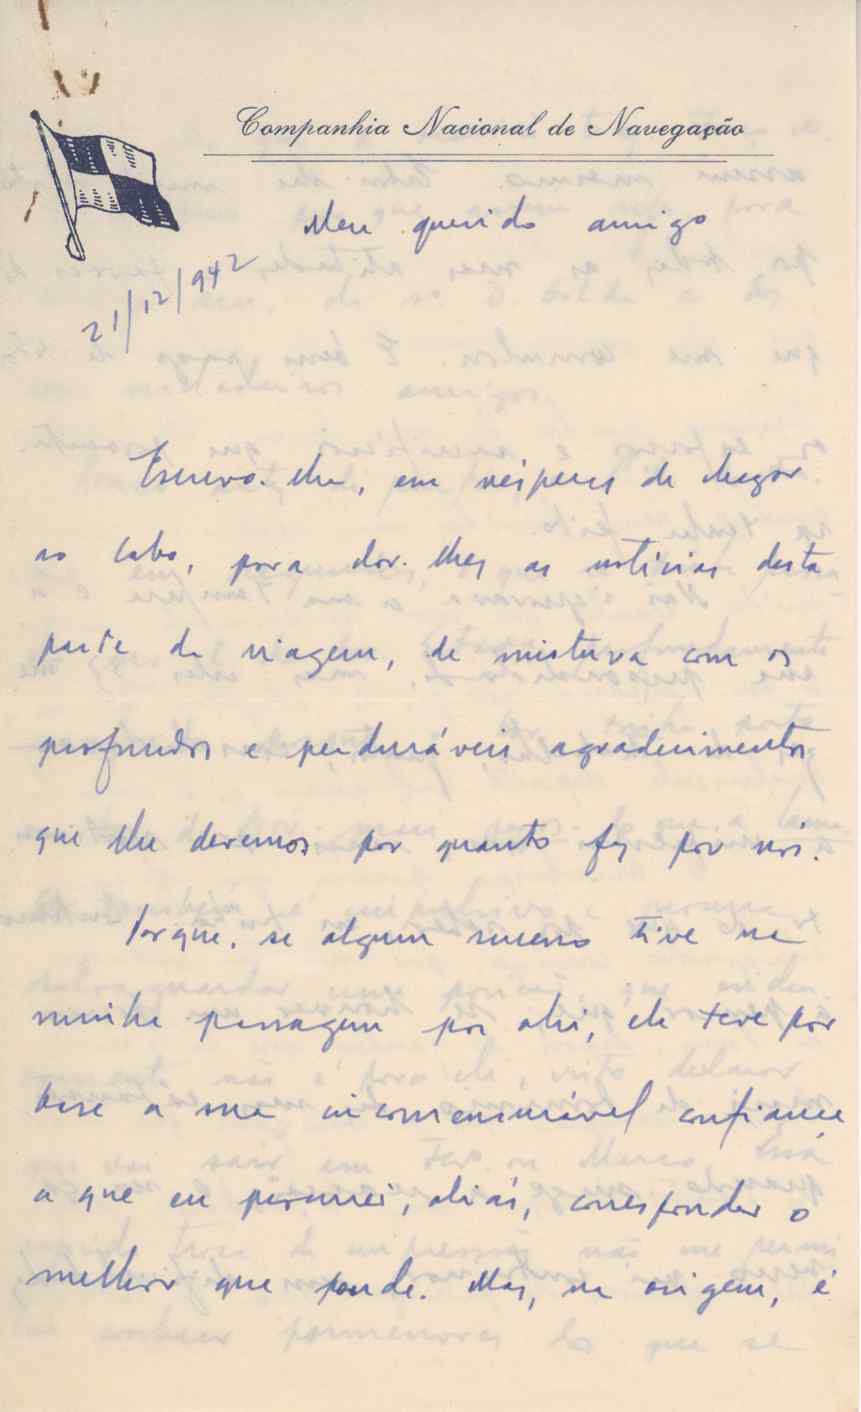 Companhia Nacional de Navegação
Meu querido amigo
21/12/942
Escrevo-lhe, em vésperas de chegar
ao Cabo, para dar-lhes as notícias desta
parte da viagem, de mistura com os
profundos e perduráveis agradecimentos
que lhe devemos por quanto fez por nós.
Porque, se algum sucesso tive na
minha passagem por ahi, ele teve por
base a sua incomensurável confiança
a que eu procurei, aliás, corresponder o
melhor que pude. Mas, na origem, é